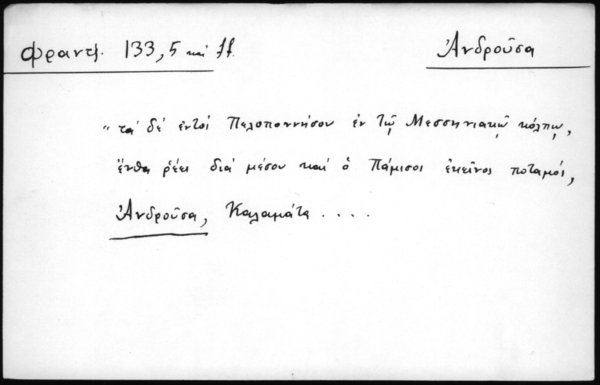 Φραντζ. 133, 5 καὶ ff. Ἀνδροῦσα
"τὰ δὲ ἐντὸς Πελοποννήσου ἐν τῷ Μεσσηνιακῷ κόλπῳ,
ἔνθα ῥέει διὰ μέσου καὶ ὁ Πάμισος ἐκεῖνος ποταμός,
Ἀνδροῦσα, Καλαμάτα ....